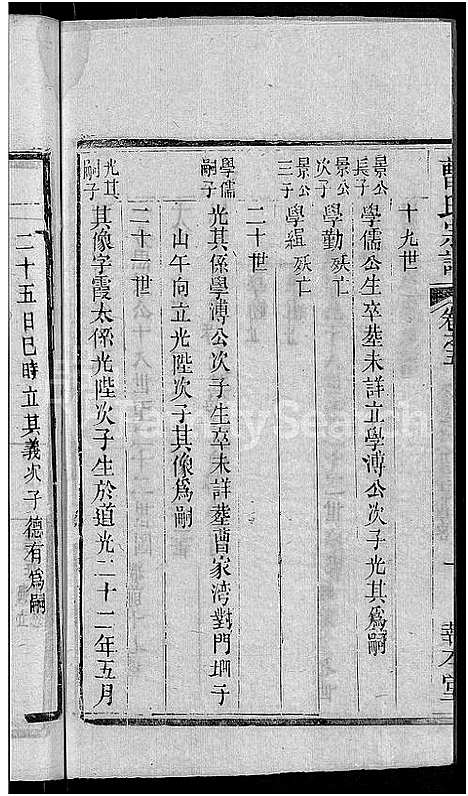 曹氏宗譜 卷之五 一 敦本堂
十九世
景公長子 學儒公生卒塟未詳立學溥公次子光其爲嗣
景公次子 學勤 殀亡
景公三子 學緝 殀亡
二十世
學儒嗣子 光其係學溥公次子生卒未詳塟曹家湾對門垇子
山午向立光陛次子其像爲嗣
二十一世
光其嗣子 其像字霞太係光陛次子生於道光二十二年五月
二十五日巳時立其義次子德有爲嗣
FamilySearch